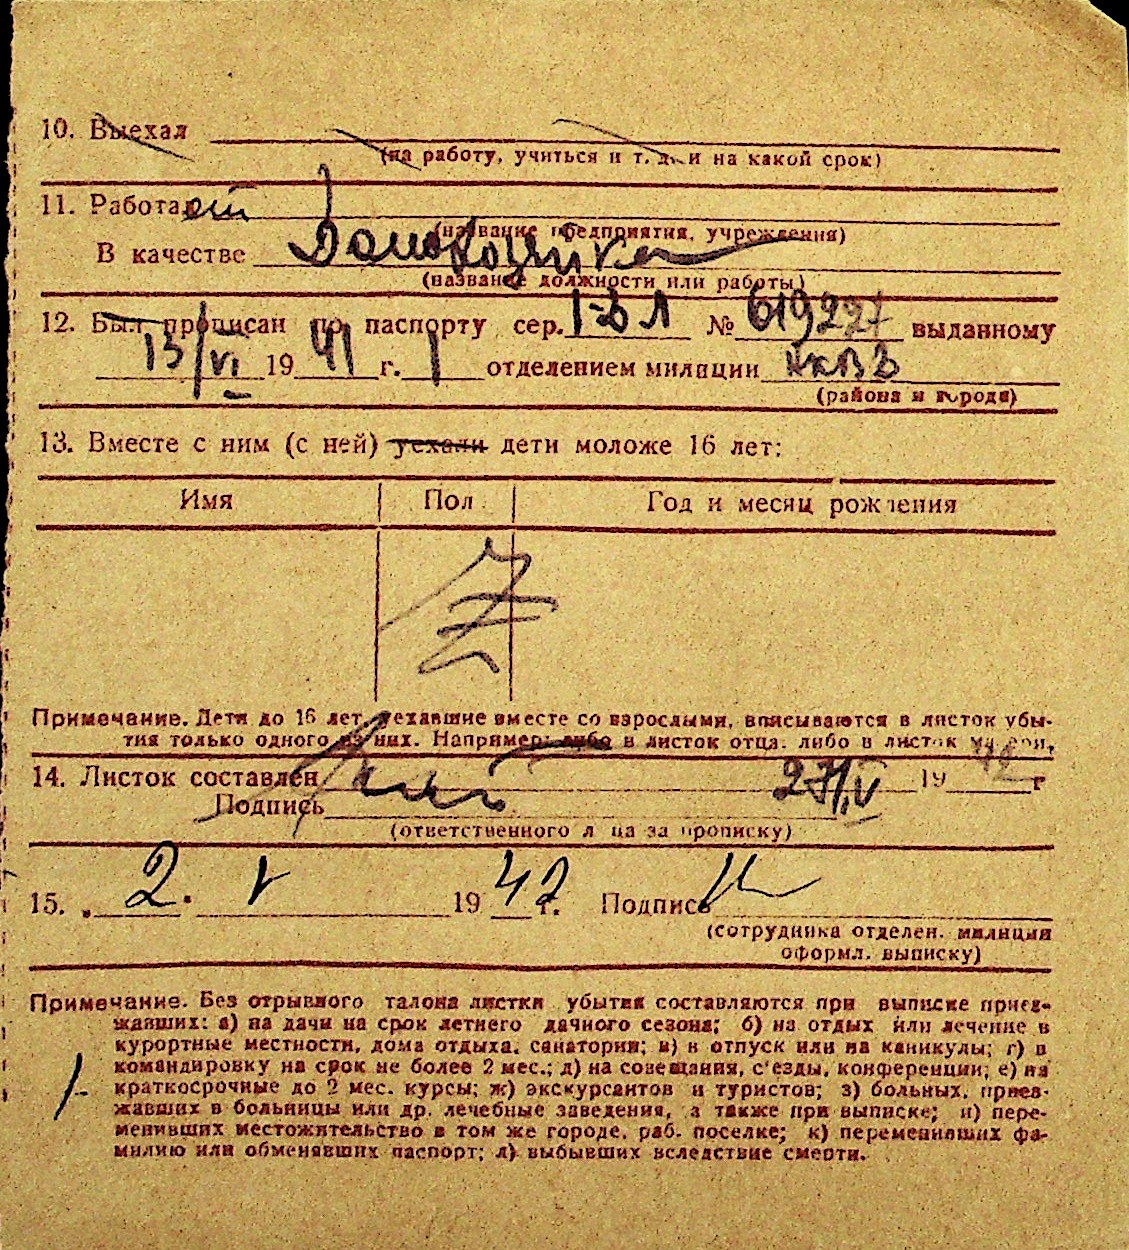 10. Выехал
(на работу, учиться и т. д. и на какой срок)
11. Работа ет
(название предприятия, учреждения)
В качестве Домохозяйка
(название должности или работы)
12. Был прописан по паспорту сер. I-БЛ № 619227 выданному
13/VI 1941 г. 1 отделением милиции НКВД
(района и города)
13. Вместе с ним (с ней) уехали дети моложе 16 лет:
Имя Пол Год и месяц рождения
Z
Примечание. Дети до 16 лет, уехавшие вместе со взрослыми, вписываются в листок убы-
тия только одного из них. Например: либо в листок отца, либо в листок матери.
14. Листок составлен 27/V 1942 г
Подпись
(ответственного лица за прописку)
15. „ 2. V 1942 г. Подпись
(сотрудника отделен. милиции
оформл. выписку)
Примечание. Без отрывного талона листки убытия составляются при выписке приез-
жавших: а) на дачи на срок летнего дачного сезона; б) на отдых или лечение в
курортные местности, дома отдыха, санатории; в) в отпуск или на каникулы; г) в
командировку на срок не более 2 мес.; д) на совещания, с'езды, конференции; е) на
краткосрочные до 2 мес. курсы; ж) экскурсантов и туристов; з) больных, приез-
жавших в больницы или др. лечебные заведения, а также при выписке; и) пере-
менивших местожительство в том же городе, раб. поселке; к) переменивших фа-
милию или обменявших паспорт; л) выбывших вследствие смерти.